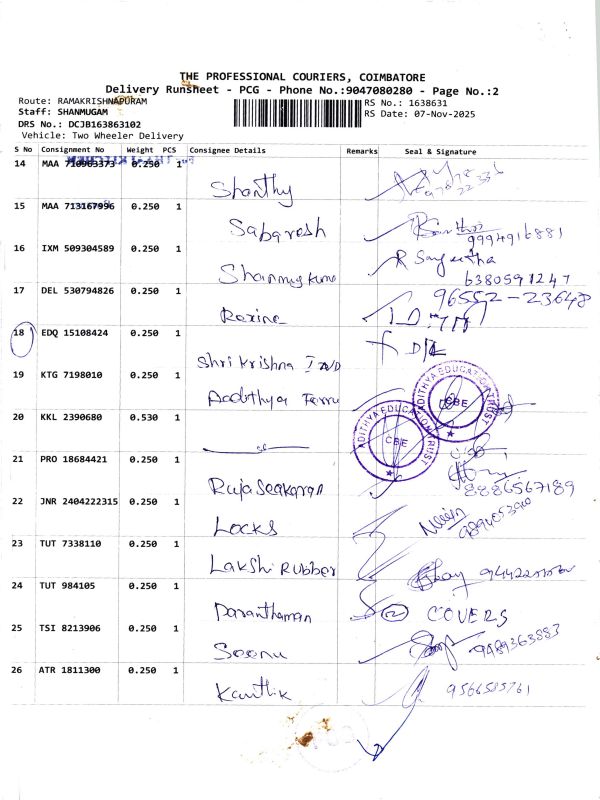 THE PROFESSIONAL COURIERS, COIMBATORE
Delivery Runsheet - PCG - Phone No.:9047080280 - Page No.:2
Route: RAMAKRISHNAPURAM
RS No.: 1638631
Staff: SHANMUGAM
RS Date: 07-Nov-2025
DRS No.: DCJB163863102
Vehicle: Two Wheeler Delivery
S No Consignment No Weight PCS Consignee Details Remarks Seal & Signature
14 MAA 710963373 0.250 1 Shanthy
15 MAA 713167996 0.250 1 Sabaresh 9994916881
16 IXM 509304589 0.250 1 Shanmugkume R Sangeetha
6380591247
17 DEL 530794826 0.250 1 Rexine 96552-23648
18 EDQ 15108424 0.250 1 Shri Krishna IND
19 KTG 7198010 0.250 1 Aadithya Ferru
ADITHYA EDUCATION TRUST
CBE
ADITHYA EDUCATION TRUST
CBE
20 KKL 2390680 0.530 1
21 PRO 18684421 0.250 1 Rajaseakaran 8886567189
22 JNR 2404222315 0.250 1 Locks
23 TUT 7338110 0.250 1 Lakshi Rubber
24 TUT 984105 0.250 1 Paranthaman 2 COVERS
25 TSI 8213906 0.250 1 Seenu 9489363883
26 ATR 1811300 0.250 1 Karthik 9566585761